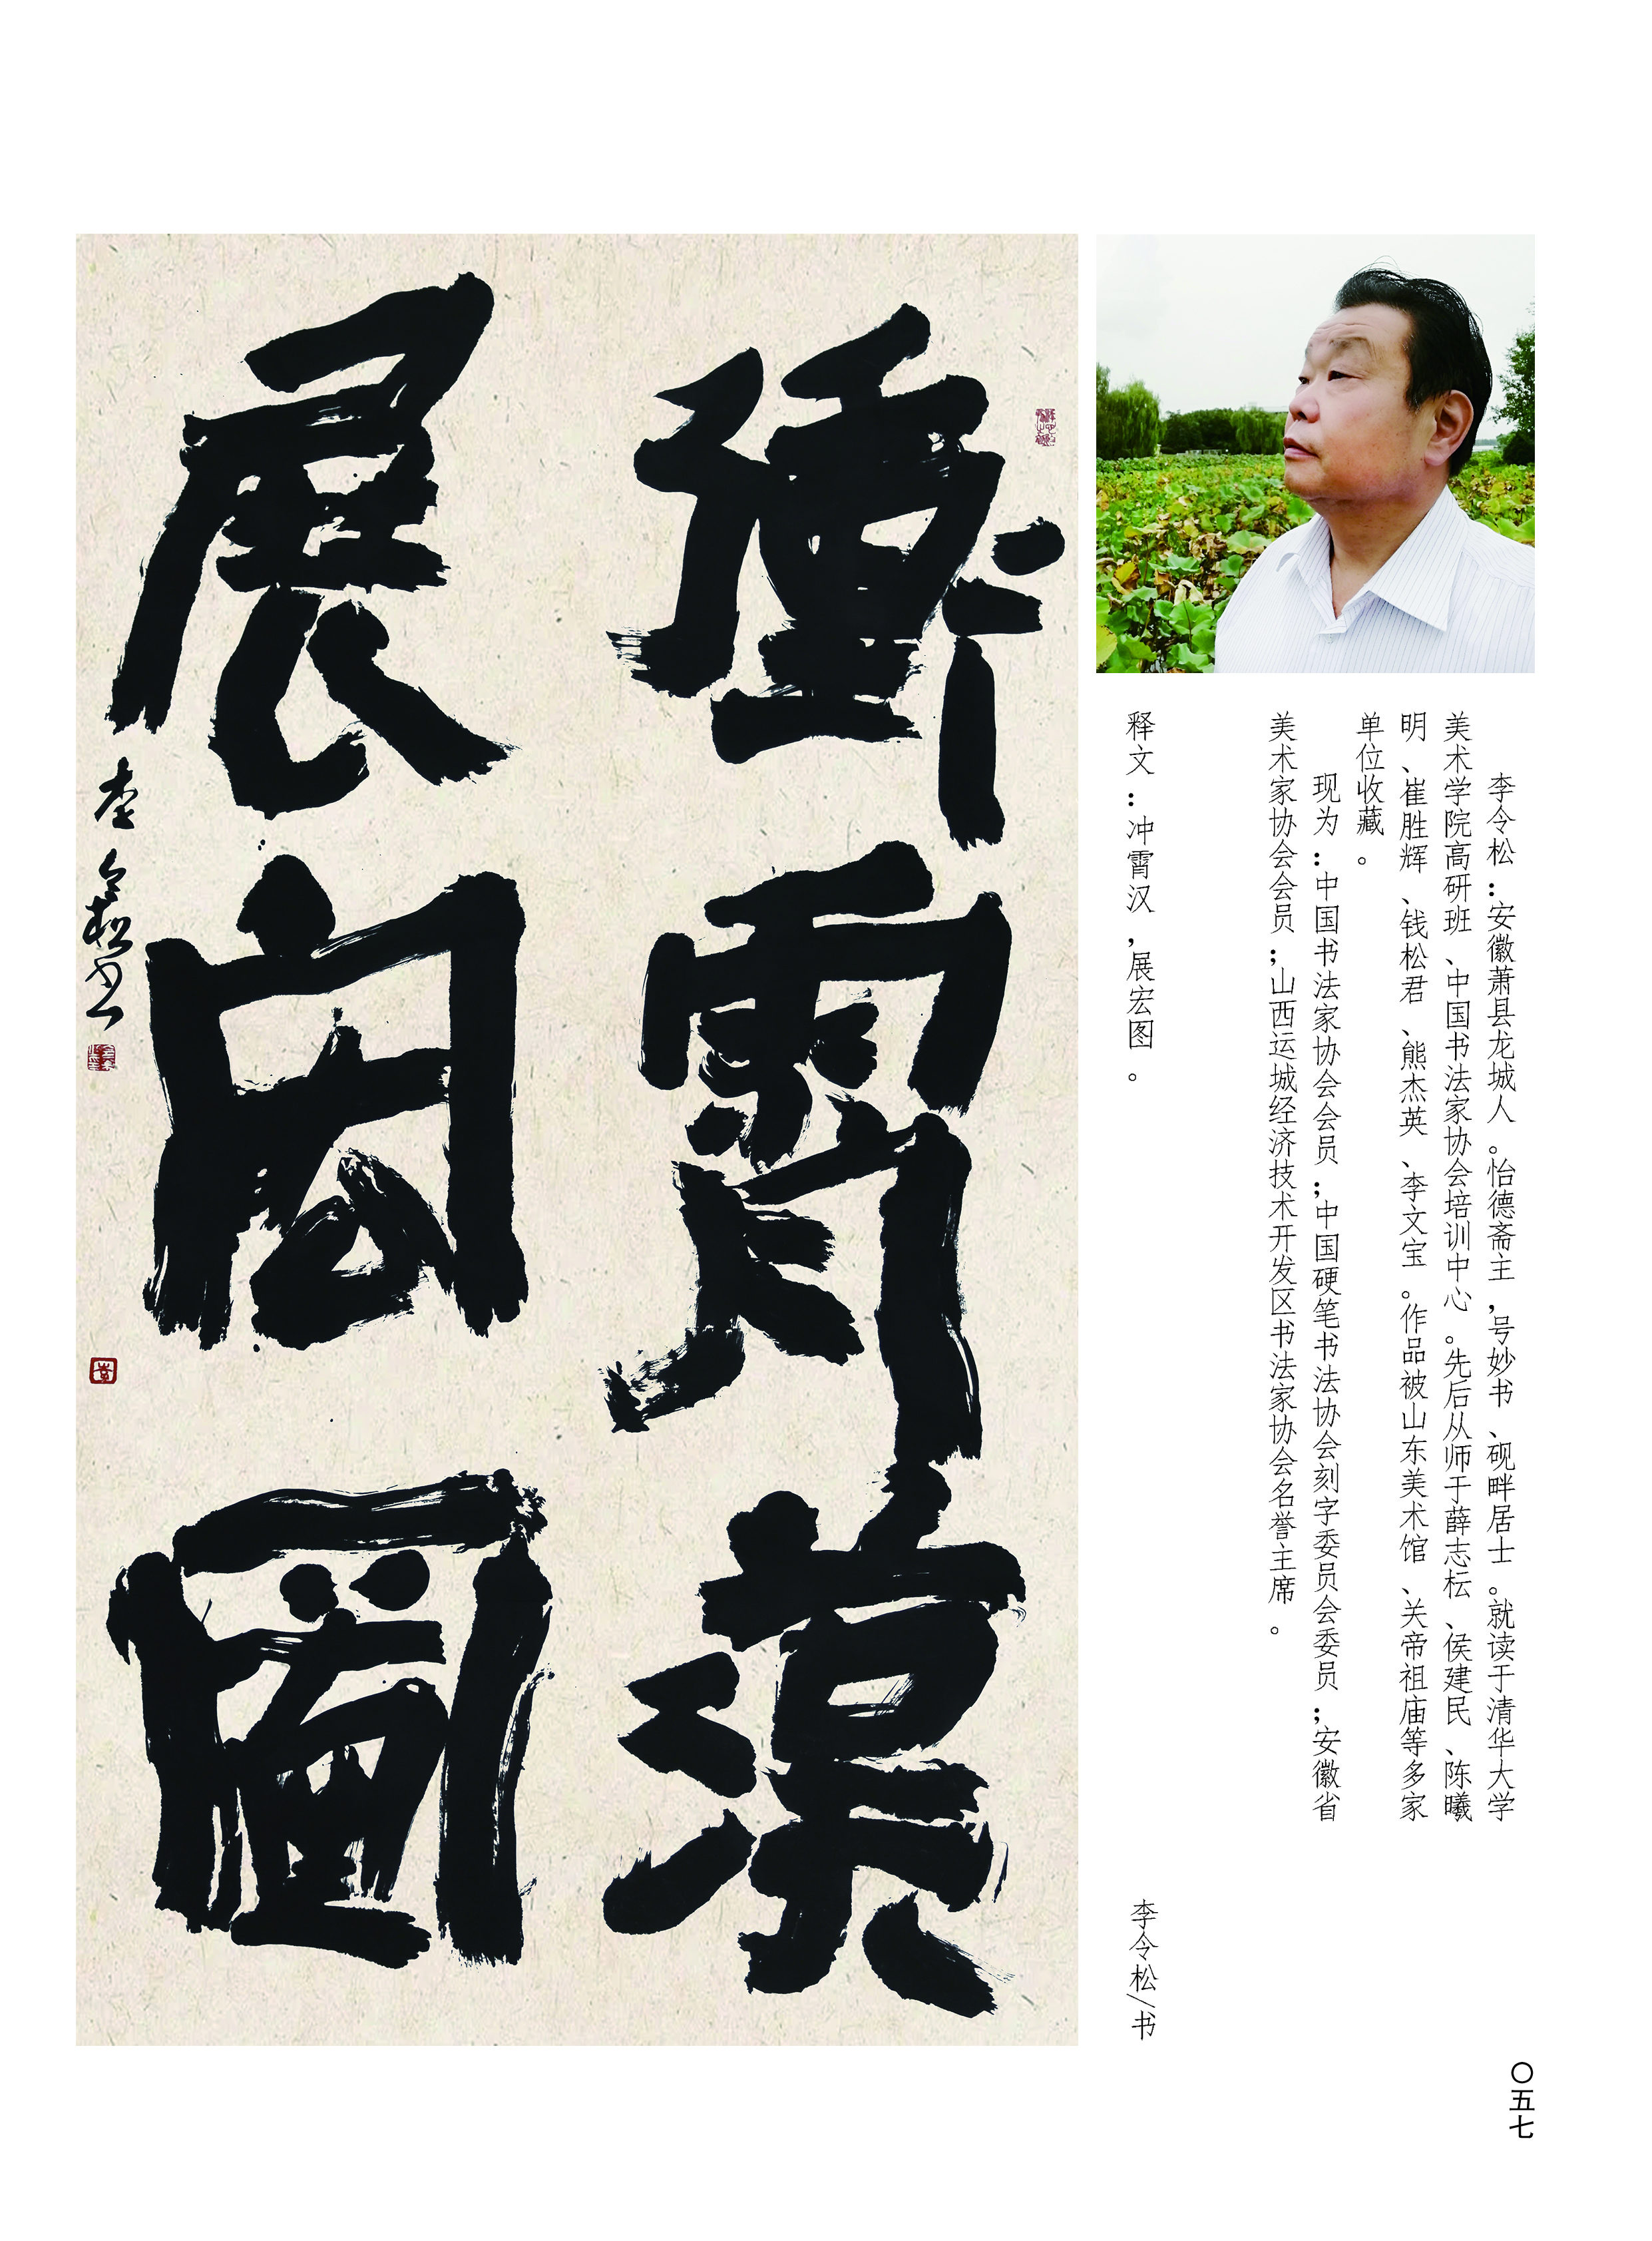 李令松：安徽萧县龙城人。怡德斋主，号妙书、砚畔居士。就读于清华大学
美术学院高研班、中国书法家协会培训中心。先后从师于薛志耘、侯建民、陈曦
明、崔胜辉、钱松君、熊杰英、李文宝。作品被山东美术馆、关帝祖庙等多家
单位收藏。
现为：中国书法家协会会员；中国硬笔书法协会刻字委员会委员；安徽省
美术家协会会员；山西运城经济技术开发区书法家协会名誉主席。
释文：冲霄汉，展宏图。
李令松/书
衝霄漢
展宏圖
李令松书
〇五七